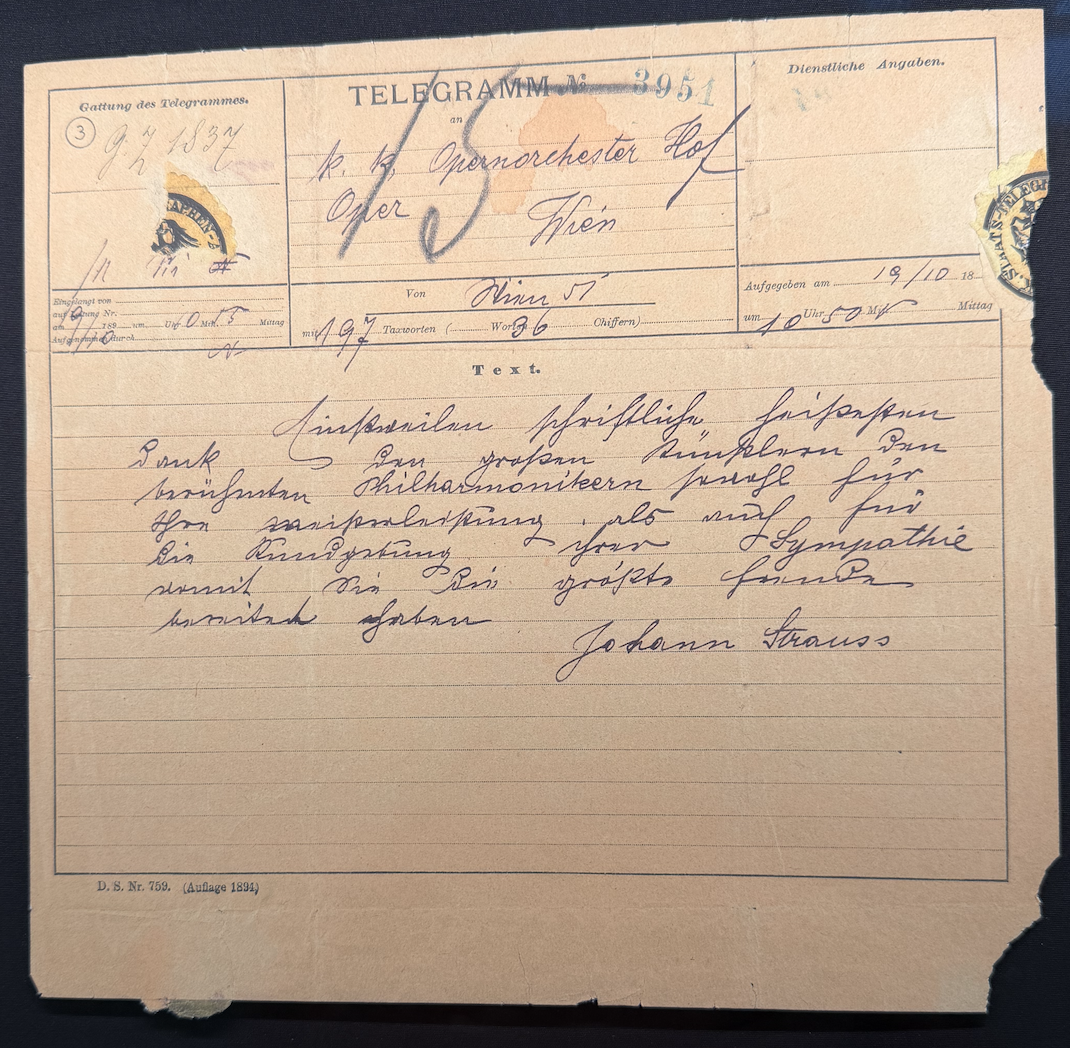 Gattung des Telegrammes.
3
g. z. 1837
TELEGRAMM № 3951
15
an
k. k. Opernorchester Hof
Oper Wien
Dienstliche Angaben.
APHEN-A
STAATS-TELEGR
Eingelangt von
auf Leitung Nr.
am 19/10 189 um Uhr M. Mittag
Aufgenommen durch
Von Wien 51
mit 197 Taxworten ( Worten 36 Chiffern)
Aufgegeben am 19/10 18
um 10 Uhr 50 M Mittag
Text.
Einstweilen schriftliche heißesten
Dank den großen Künstlern den
berühmten Philharmonikern sowohl für
Ihre meisterleistung als auch für
die Kundgebung ihrer Sympathie
womit Sie die größte freude
bereitet haben
Johann Strauss
D. S. Nr. 759. (Auflage 1894)